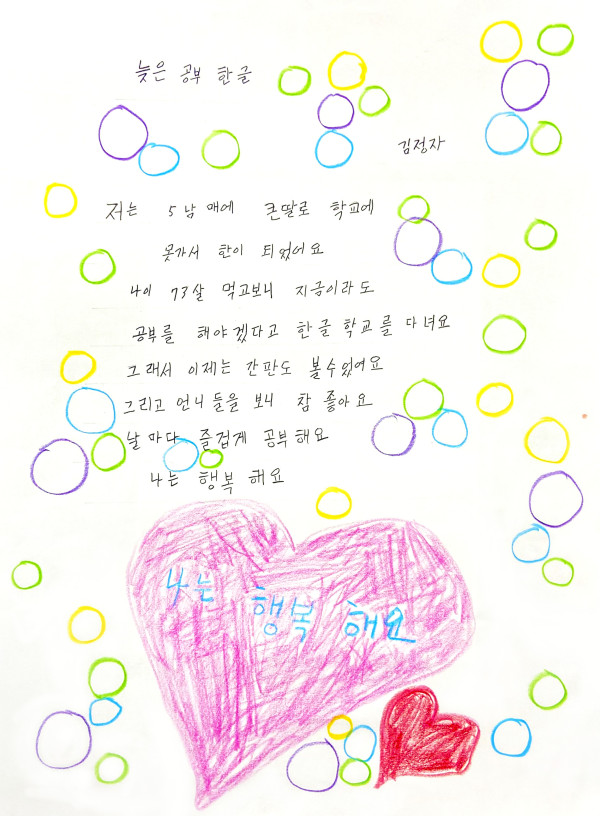 늦은 공부 한글
김정자
저는 5남매에 큰딸로 학교에
못가서 한이 되었어요
나이 73살 먹고보니 지금이라도
공부를 해야겠다고 한글학교를 다녀요
그래서 이제는 간판도 볼수있어요
그리고 언니들을 보니 참 좋아요
날마다 즐겁게 공부해요
나는 행복해요
나는 행복해요